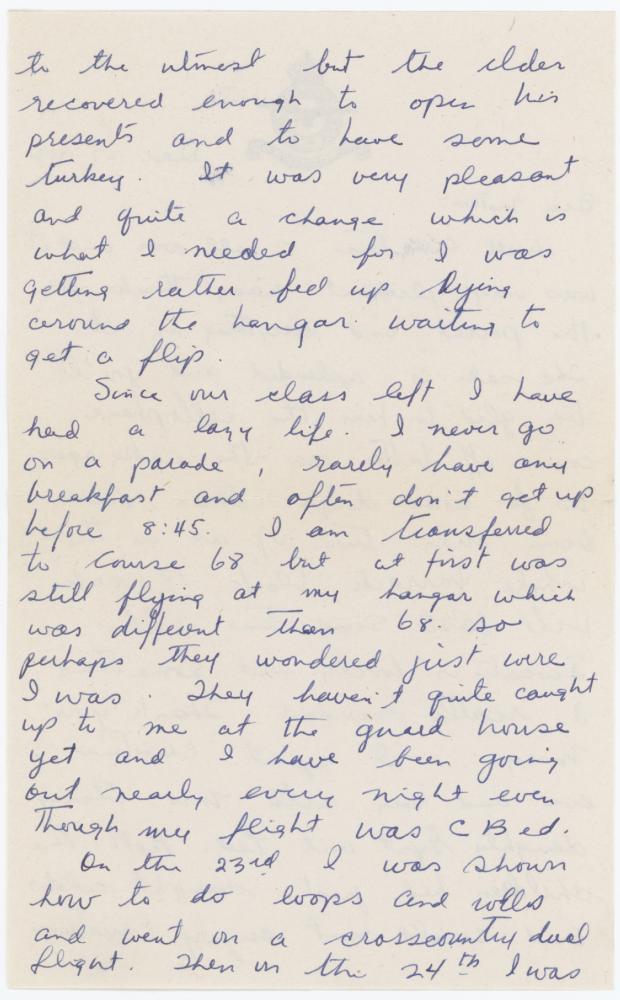 to the utmost but the elder
recovered enough to open his
presents and to have some
turkey. It was very pleasant
and quite a change which is
what I needed for I was
getting rather fed up lying
around the hangar waiting to
get a flip.
Since our class left I have
had a lazy life. I never go
on a parade, rarely have any
breakfast and often don't get up
before 8:45. I am transferred
to Course 68 but at first was
still flying at my hangar which
was different than 68. so
perhaps they wondered just were
I was. They haven't quite caught
up to me at the guard house
yet and I have been going
out nearly every night even
though my flight was CBed.
On the 23rd I was shown
how to do loops and rolls
and went on a crosscountry dual
flight. Then on the 24th I was